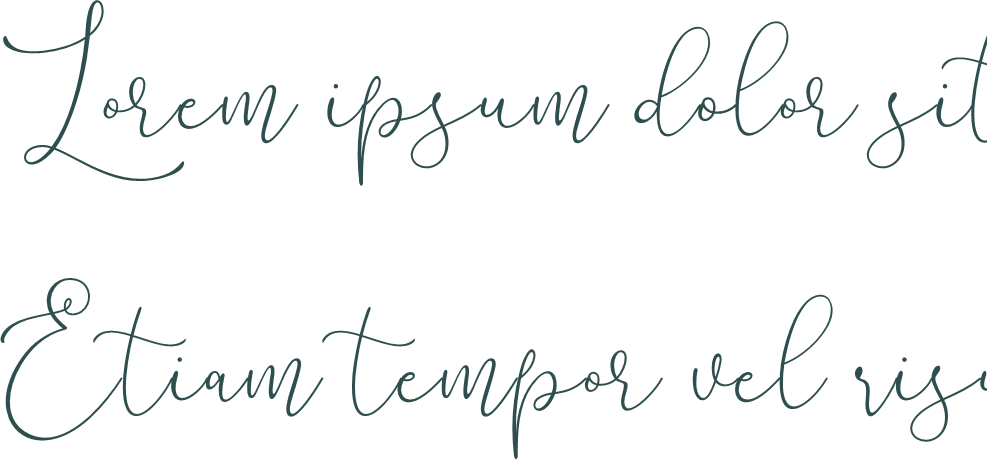 Lorem ipsum dolor sit
Etiam tempor vel risu